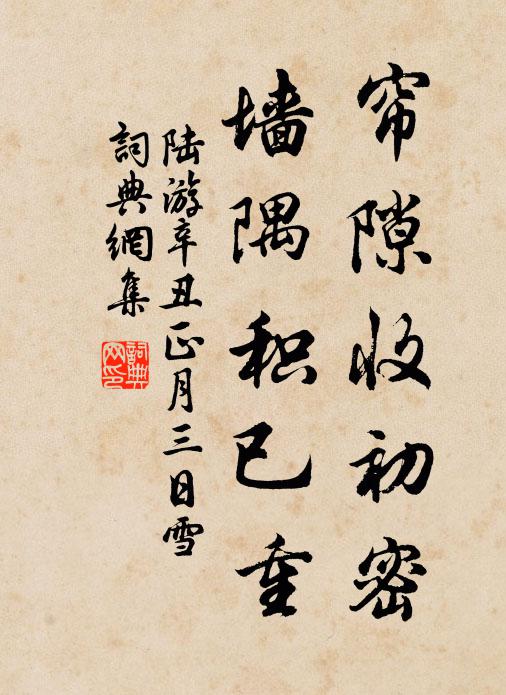 帘隙收初密
墙隅积已重
陆游辛丑正月三日雪
詞典網集
詞典网印